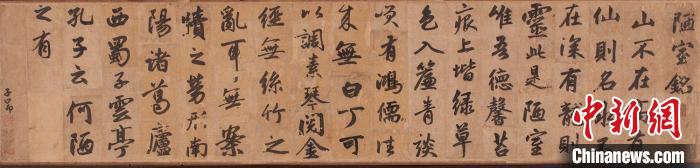 陋室銘
山不在高有
仙則名水不
在深有龍則
靈此是陋室
唯吾德馨苔
痕上堦緑草
色入簾青談
笑有鴻儒往
來無白丁可
以調素琴閱金
經無絲竹之
亂耳無案
牘之勞形南
陽諸葛廬
西蜀子雲亭
孔子云何陋
之有
子昂
中新网
Chinanews.com